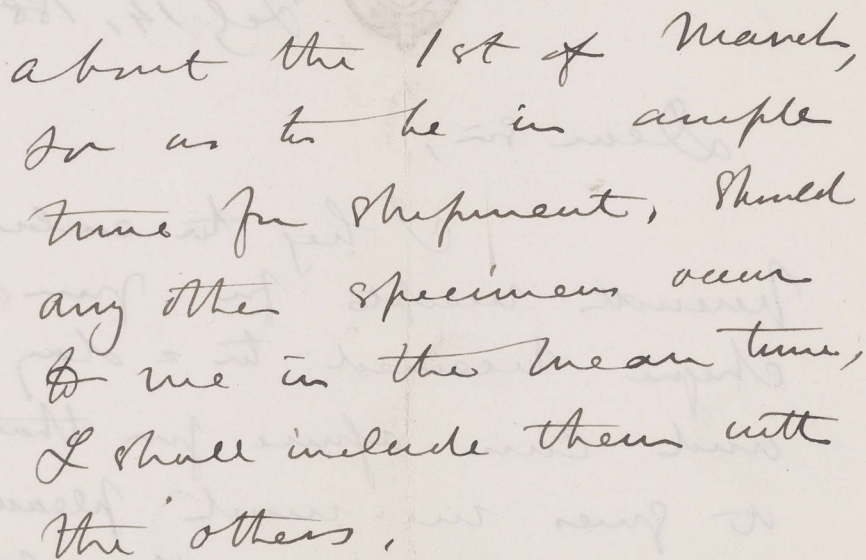 about the 1st of March,
so as to be in ample
time for shipment, should
any other specimens occur
to me in the mean time,
I shall include them with
the others.